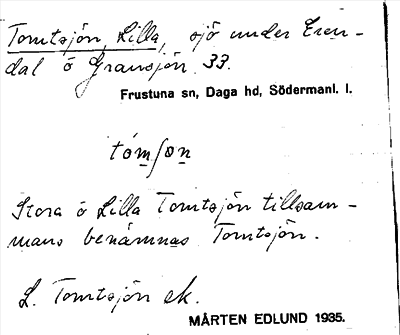 Tomtsjön, Lilla, sjö under Eren-
dal ö Gransjön 33.
Frustuna sn, Daga hd, Södermanl. l.
tómʃon
Stora ö Lilla Tomtsjön tillsam-
mans benämnas Tomtsjön.
L. Tomtsjön ek.
MÅRTEN EDLUND 1935.